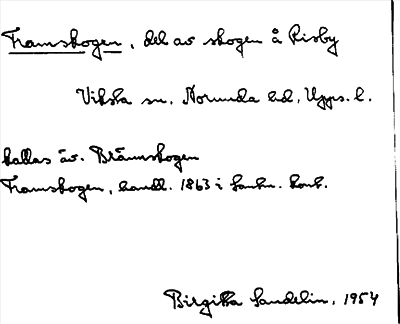 Framskogen, del av skogen å Risby
Viksta sn, Norunda hd, Upps. l.
kallas äv. Brännskogen
Framskogen, handl. 1863 i Lantm. kont.
Birgitta Sandelin, 1954